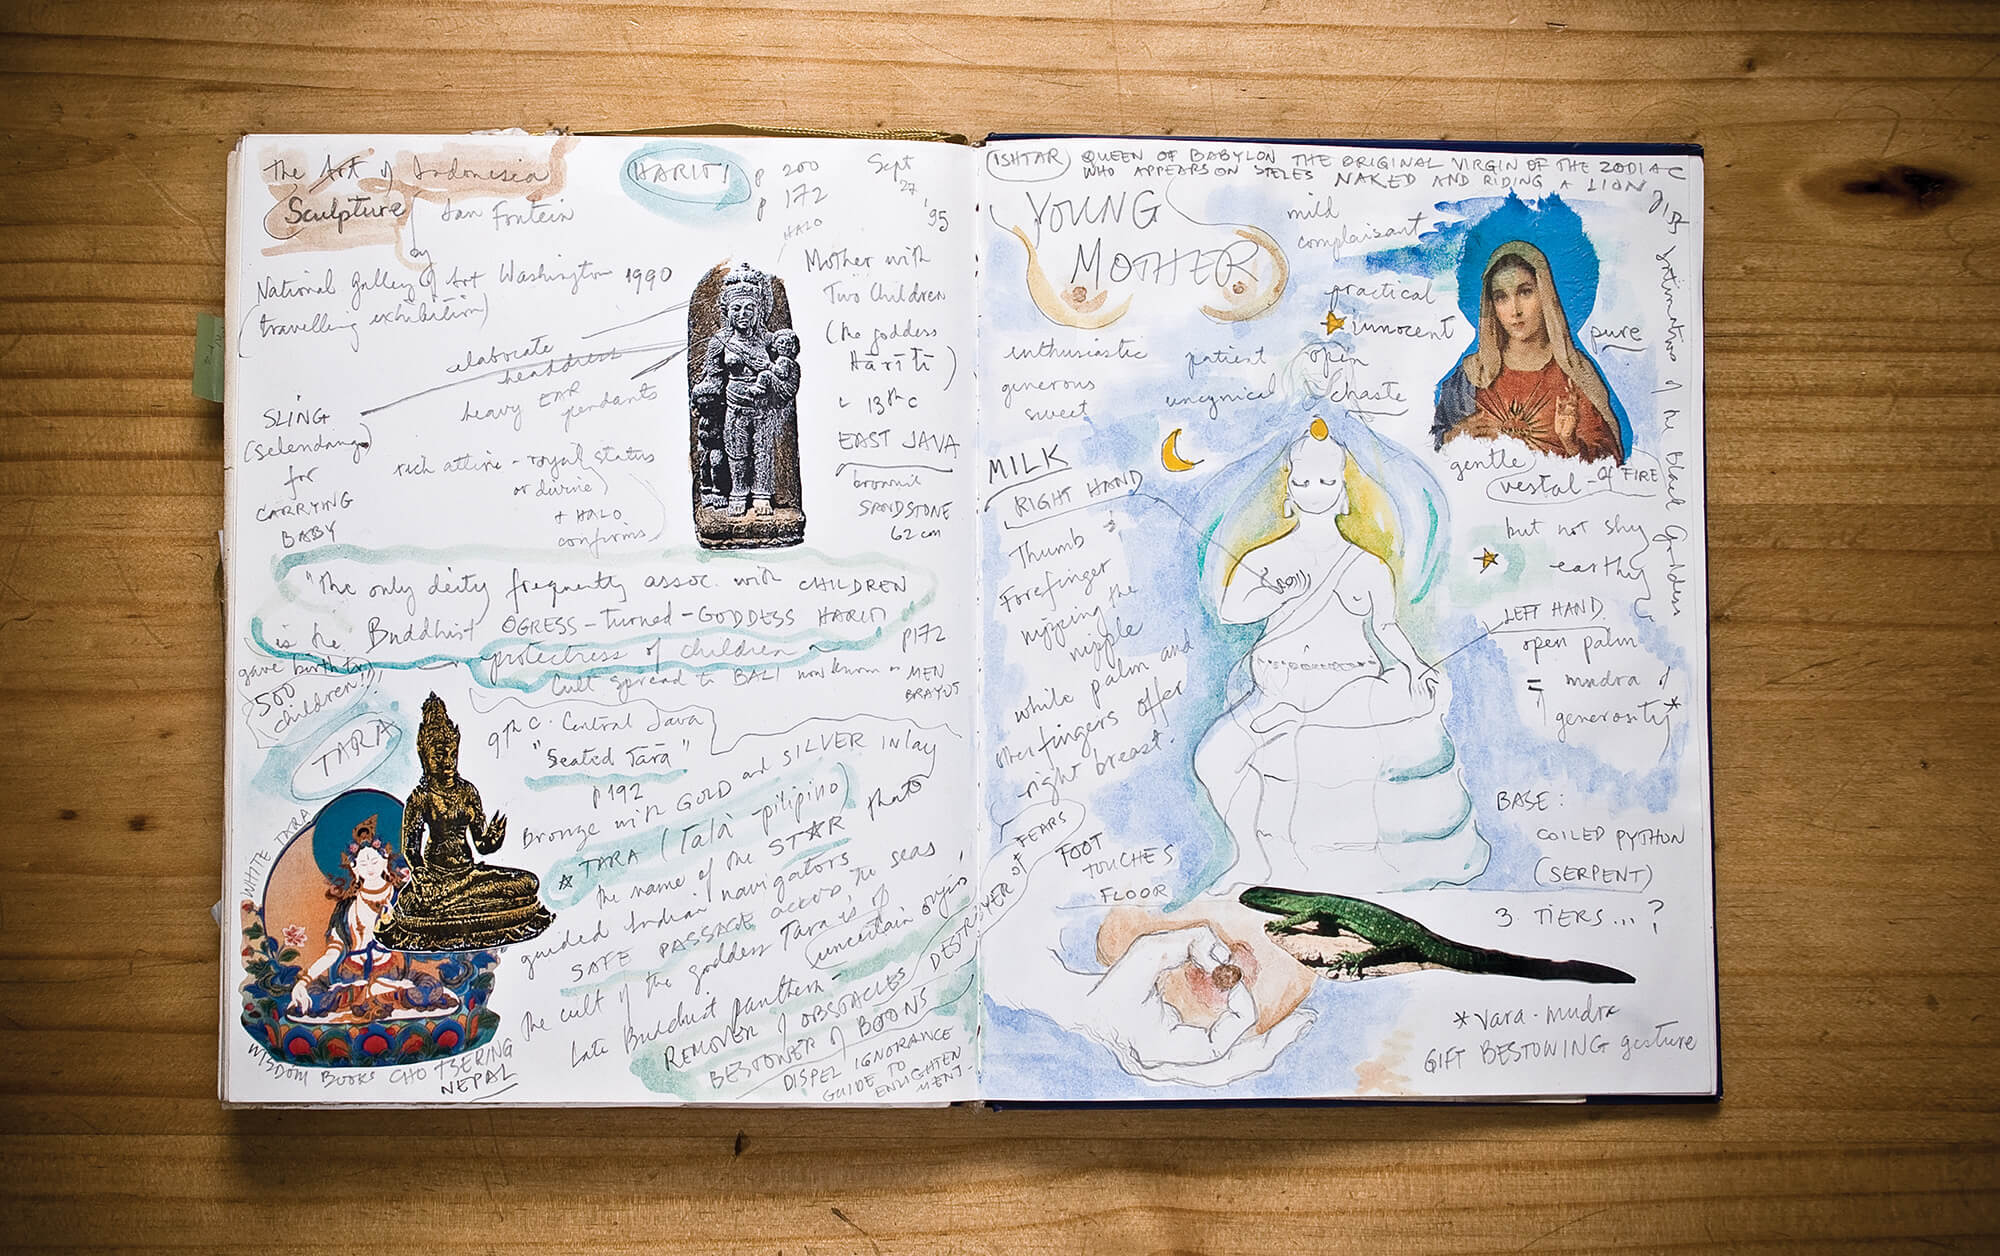 The Art of Indonesia
Sculpture
by Jan Fontein
HARITI
p 200
p 172
HALO
Sept
27
'95
National Gallery of Art Washington 1990
(travelling exhibition)
elaborate
headdress
heavy EAR
pendants
SLING
(selendang)
for
CARRYING
BABY
rich attire - royal status
or divine
+ HALO
confirms
Mother with
Two Children
(the goddess
Hārītī)
13th c
EAST JAVA
SANDSTONE
62 cm
"The only deity frequently assoc. with CHILDREN
is the Buddhist OGRESS-turned-GODDESS HARITI
protectress of children
p172
gave birth to
500
children!!)
Cult spread to BALI now known as MEN
BRAYUT
TARA
9th c. Central Java
"Seated Tārā"
p192
Bronze with GOLD and SILVER inlay
TARA (Tala pilipino)
the name of the STAR that
guided Indian navigators
SAFE PASSAGE across the seas,
the cult of the goddess Tara is of
uncertain origin
Late Buddhist pantheon -
REMOVER of OBSTACLES DESTROYER OF FEARS
BESTOWER of BOONS
DISPEL IGNORANCE
GUIDE TO
ENLIGHTEN
MENT-
WHITE TARA
WISDOM BOOKS CHO TSERING
NEPAL
ISHTAR QUEEN OF BABYLON THE ORIGINAL VIRGIN OF THE ZODIAC
WHO APPEARS ON STELES NAKED AND RIDING A LION
of the Black Goddess
YOUNG
MOTHER
mild
complaisant
practical
innocent
pure
enthusiastic
patient
open
generous
uncynical
chaste
sweet
gentle
vestal - of FIRE
but not shy
earthy
MILK
RIGHT HAND
Thumb &
Forefinger
the
nipple
while palm and
other fingers offer
right breast.
LEFT HAND
open palm
= mudra of
generosity*
FOOT
TOUCHES
FLOOR
BASE:
COILED PYTHON
(SERPENT)
3 TIERS...?
* vara-mudra
GIFT BESTOWING gesture